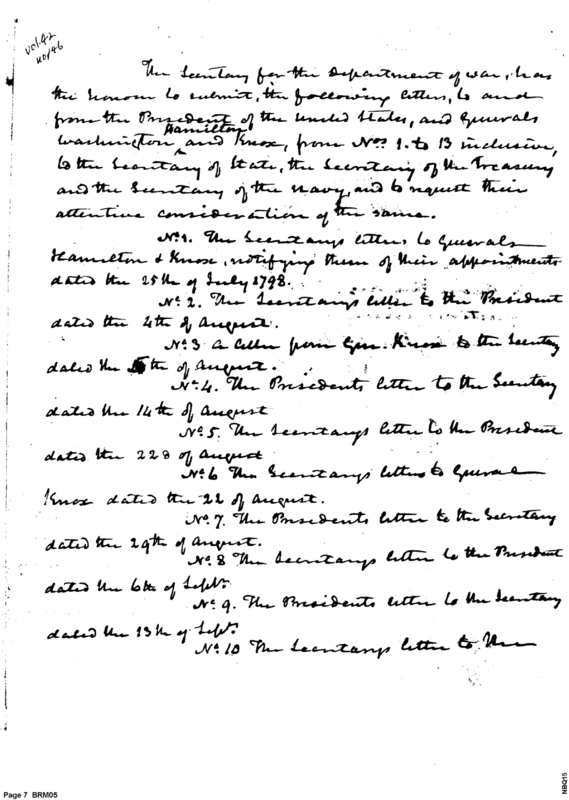 vol.42
no.96
The Secretary for the Department of war, has
the honour to submit, the following letters, to and
from the President of the United States, and Generals
Hamilton
Washington and Knox, from Nos. 1. to 13 inclusive,
to the Secretary of State, the Secretary of the Treasury
and the Secretary of the navy, and to request their
attentive consideration of the same.
No. 1. The Secretarys letters to Generals
Hamilton & Knox, notifying them of their appointments
dated the 25th of July 1798.
No. 2. The Secretarys letter to the President
dated the 4th of August.
No. 3 a letter from Gen. Knox to the Secretary
dated the 5th of August.
No. 4. The Presidents letter to the Secretary
dated the 14th of August
No. 5. The Secretarys letter to the President
dated the 22d of August
No. 6 The Secretarys letters to General
Knox dated the 22 of August.
No. 7. The Presidents letter to the Secretary
dated the 29th of August.
No. 8 The Secretarys letter to the President
dated the 6th of Septr.
No. 9. The Presidents letter to the Secretary
dated the 13th of Septr.
No. 10 The Secretarys letter to the
Page 7 BRM05
NBQ15